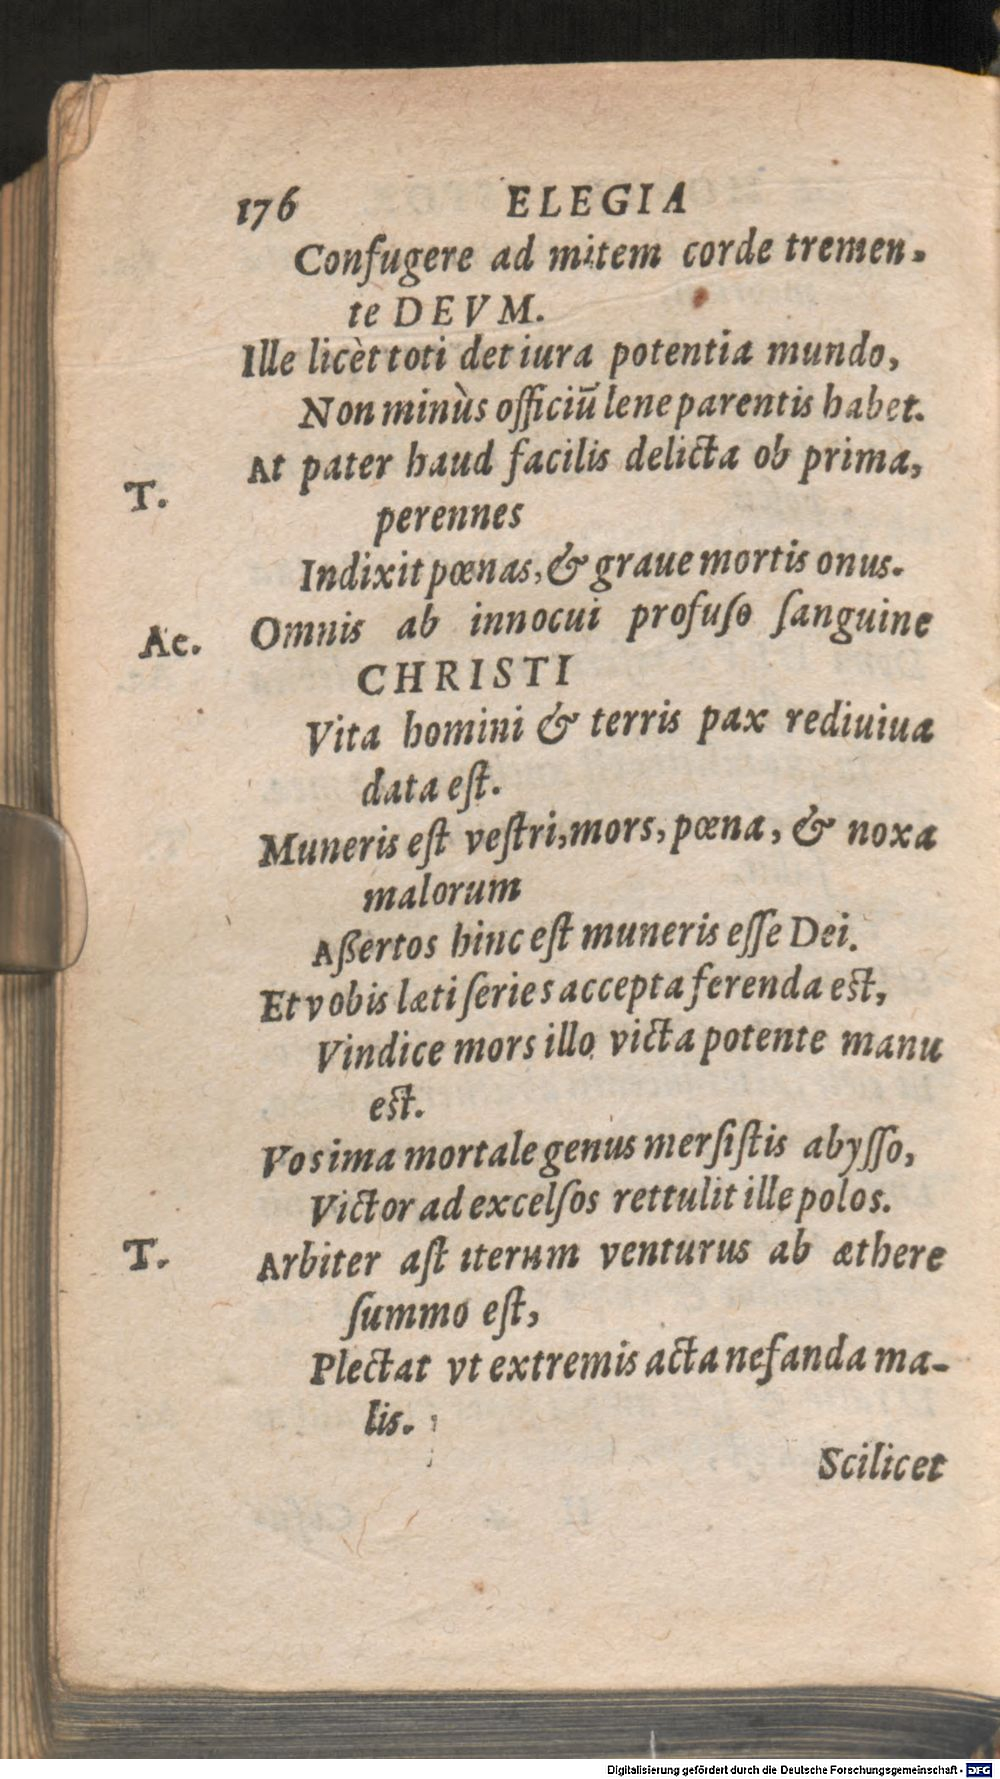 176 ELEGIA
Confugere ad mitem corde tremen-
te DEVM.
Ille licèt toti det iura potentia mundo,
Non minùs officiū lene parentis habet.
T. At pater haud facilis delicta ob prima,
perennes
Indixit pœnas, & graue mortis onus.
Ac. Omnis ab innocui profuso ſanguine
CHRISTI
Vita homini & terris pax rediuiua
data eſt.
Muneris eſt veſtri, mors, pœna, & noxa
malorum
Aßertos hinc eſt muneris eſſe Dei.
Et vobis læti ſeries accepta ferenda est,
Vindice mors illo victa potente manu
est.
Vos ima mortale genus merſiſtis abyſſo,
Victor ad excelſos rettulit ille polos.
T. Arbiter aſt iterum venturus ab æthere
ſummo eſt,
Plectat vt extremis acta nefanda ma-
lis.
Scilicet
Digitalisierung gefördert durch die Deutsche Forschungsgemeinschaft - DFG